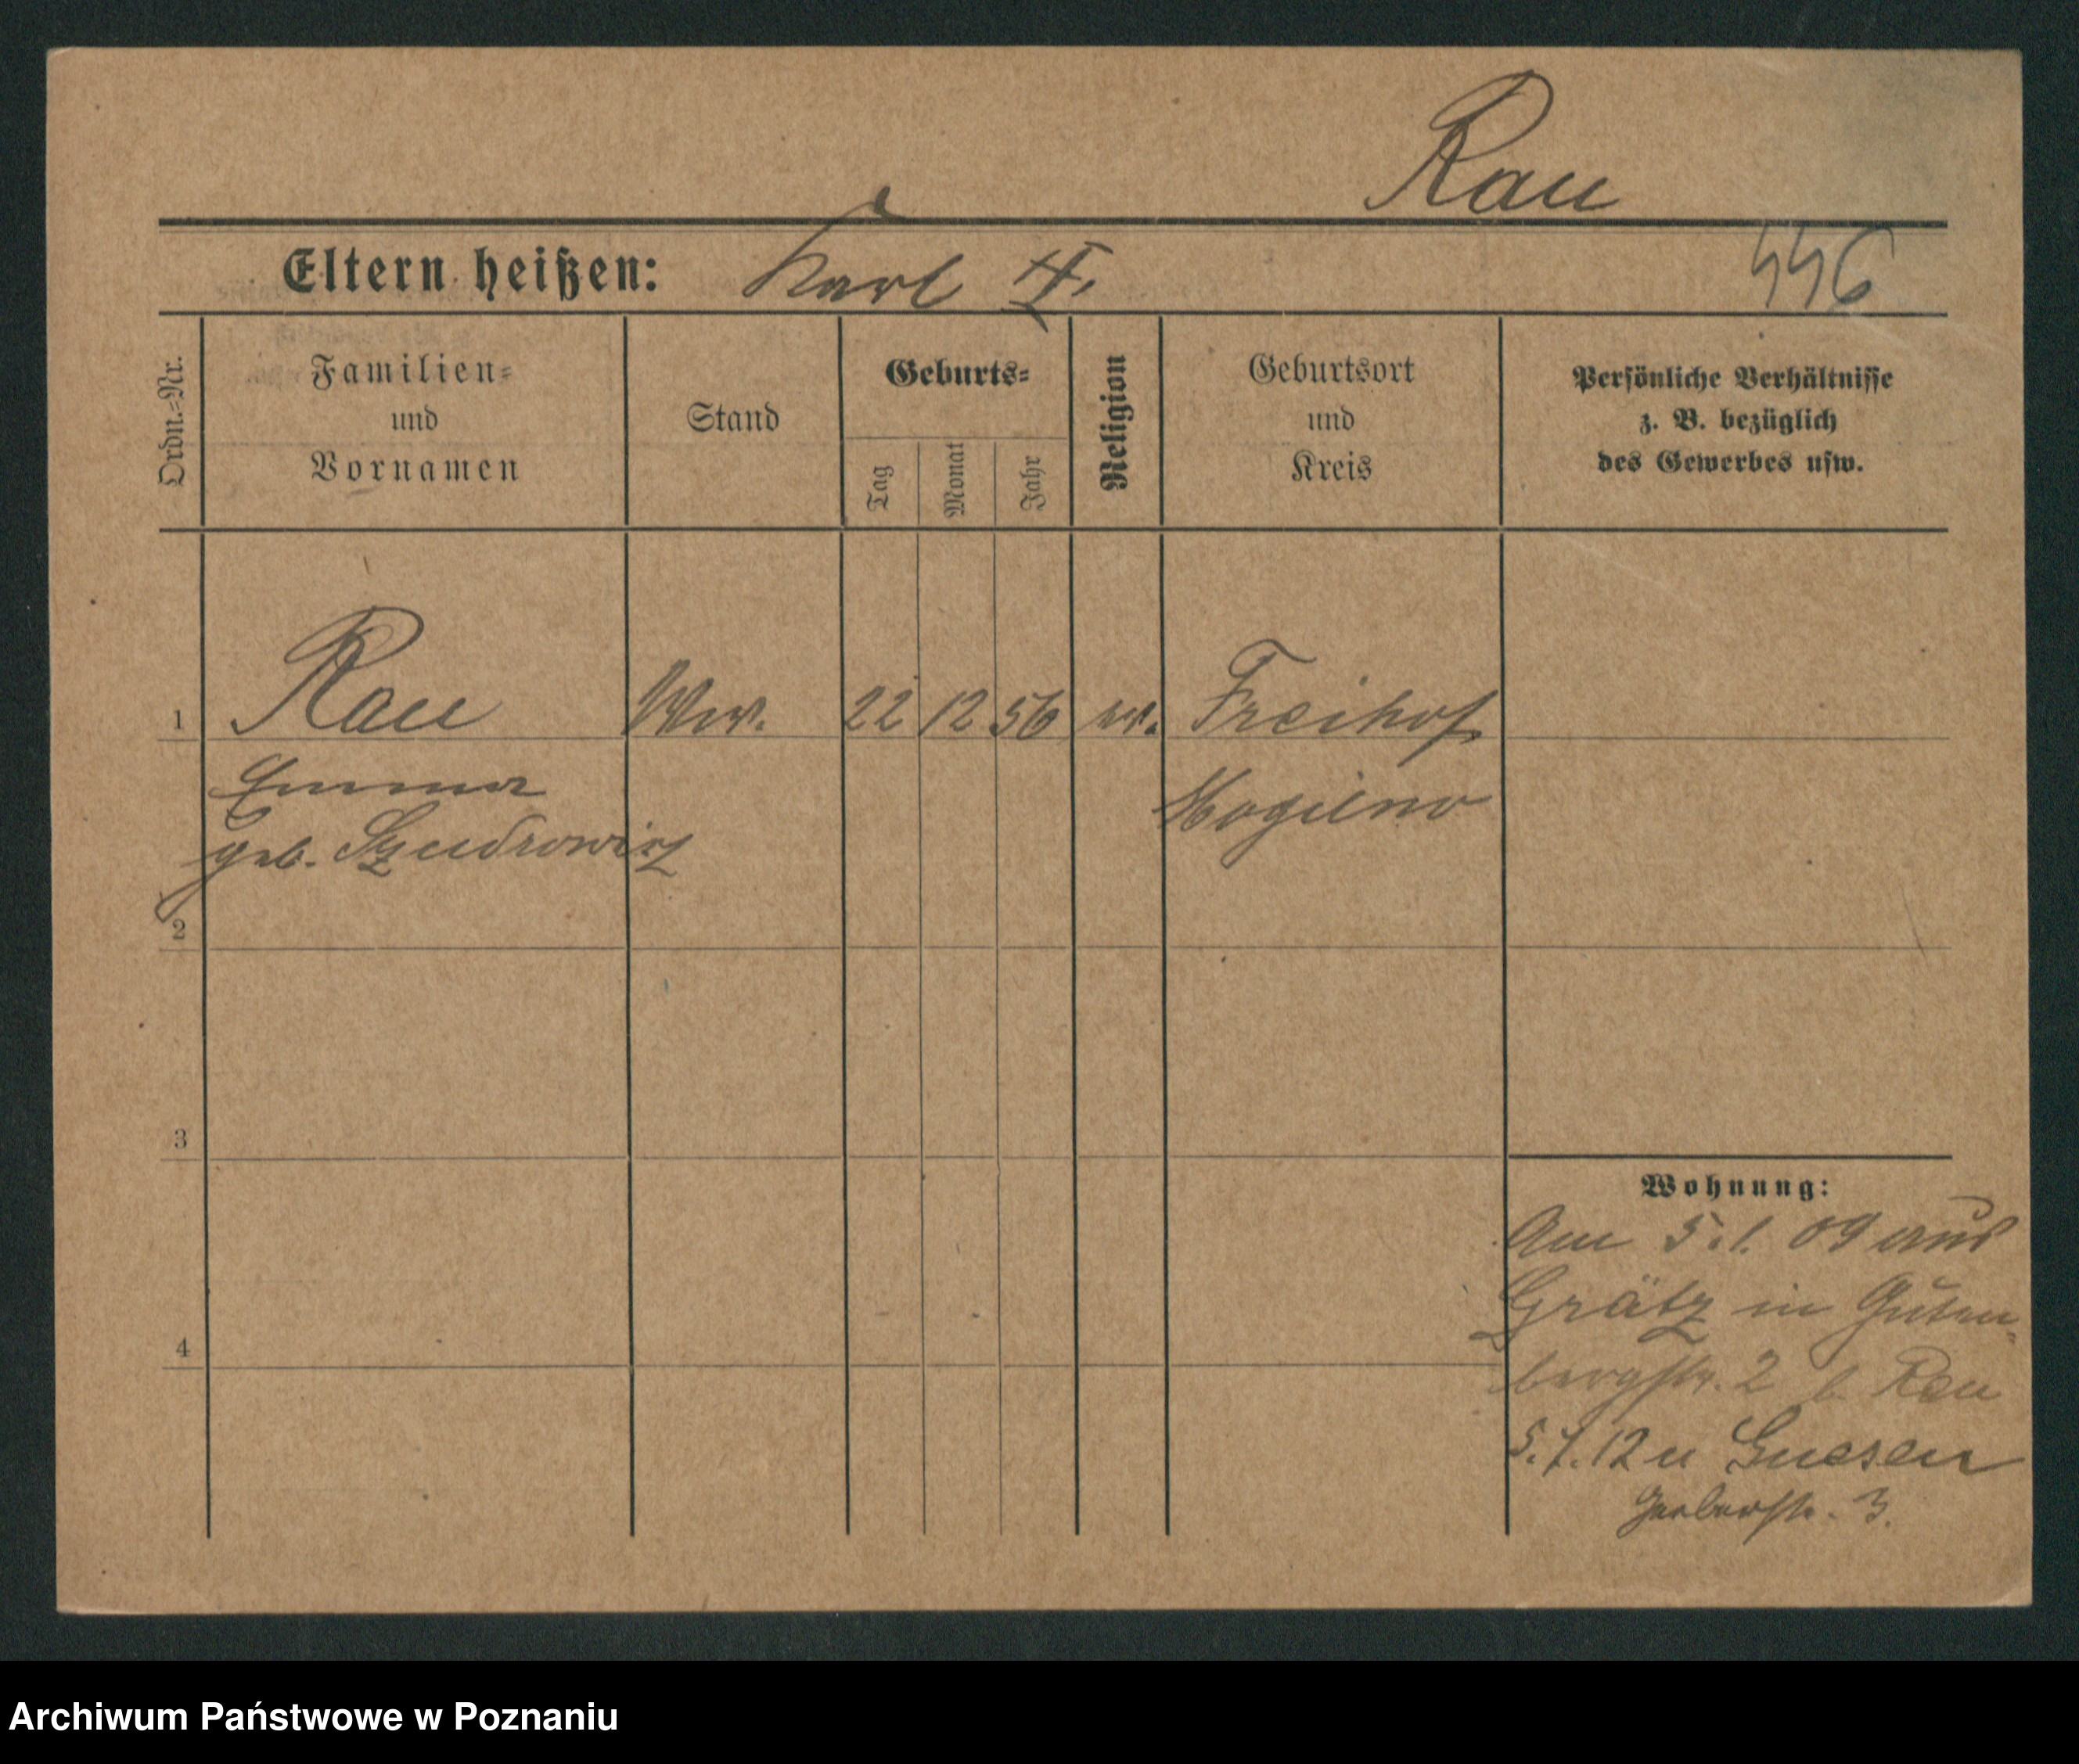 Rau
Eltern heißen: Karl
446
Ordn.-Nr.
Familien-
und
Vornamen
Stand
Geburts-
Tag
Monat
Jahr
Religion
Geburtsort
und
Kreis
Persönliche Verhältnisse
z. B. bezüglich
des Gewerbes usw.
1 Rau Ww. 22 12 56 Freihof
Emma Mogilno
geb.
2
3
4
Wohnung:
Am 5.1. 09 aus
Grätz in Guten-
bergstr. 2 b. Rau
5.7.12 n Gnesen
Gerberstr. 3.
Archiwum Państwowe w Poznaniu